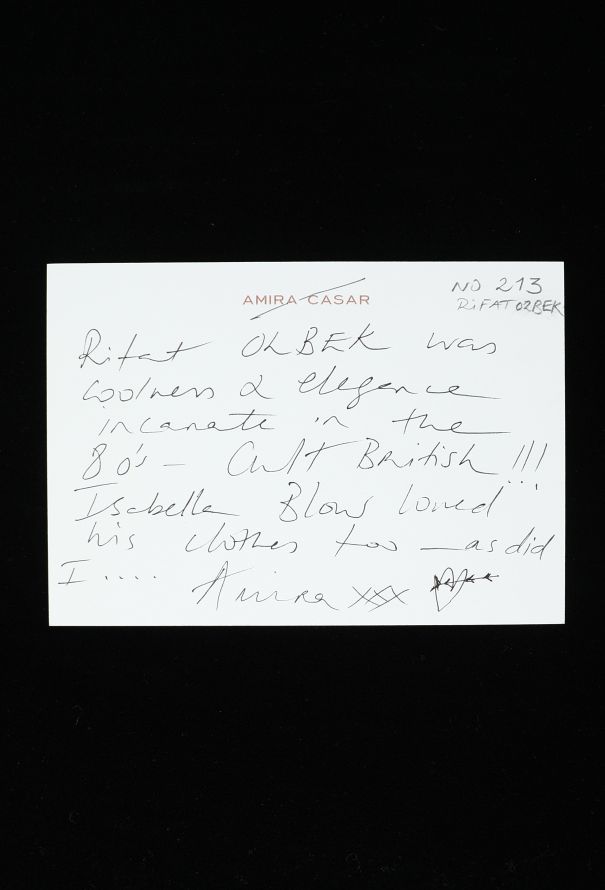 AMIRA CASAR
NO 213
RIFAT OZBEK
Rifat OZBEK was
coolness & elegance
incanate in the
80's - Cult British !!!
Isabella Blow loved
his clothes too - as did
I .....
Amira xxx